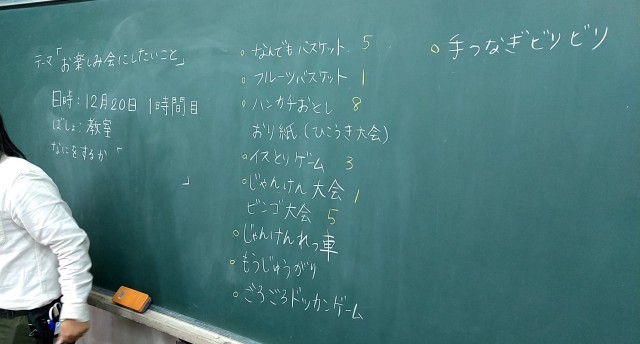 テーマ「お楽しみ会にしたいこと」
日時：12月20日 1時間目
ばしょ：教室
なにをするか「
」
○なんでもバスケット 5
○フルーツバスケット 1
○ハンカチおとし 8
おり紙（ひこうき大会）
○イスとりゲーム 3
○じゃんけん大会 1
ビンゴ大会 5
○じゃんけんれっ車
○もうじゅうがり
○ごろごろドッカンゲーム
○手つなぎビリビリ